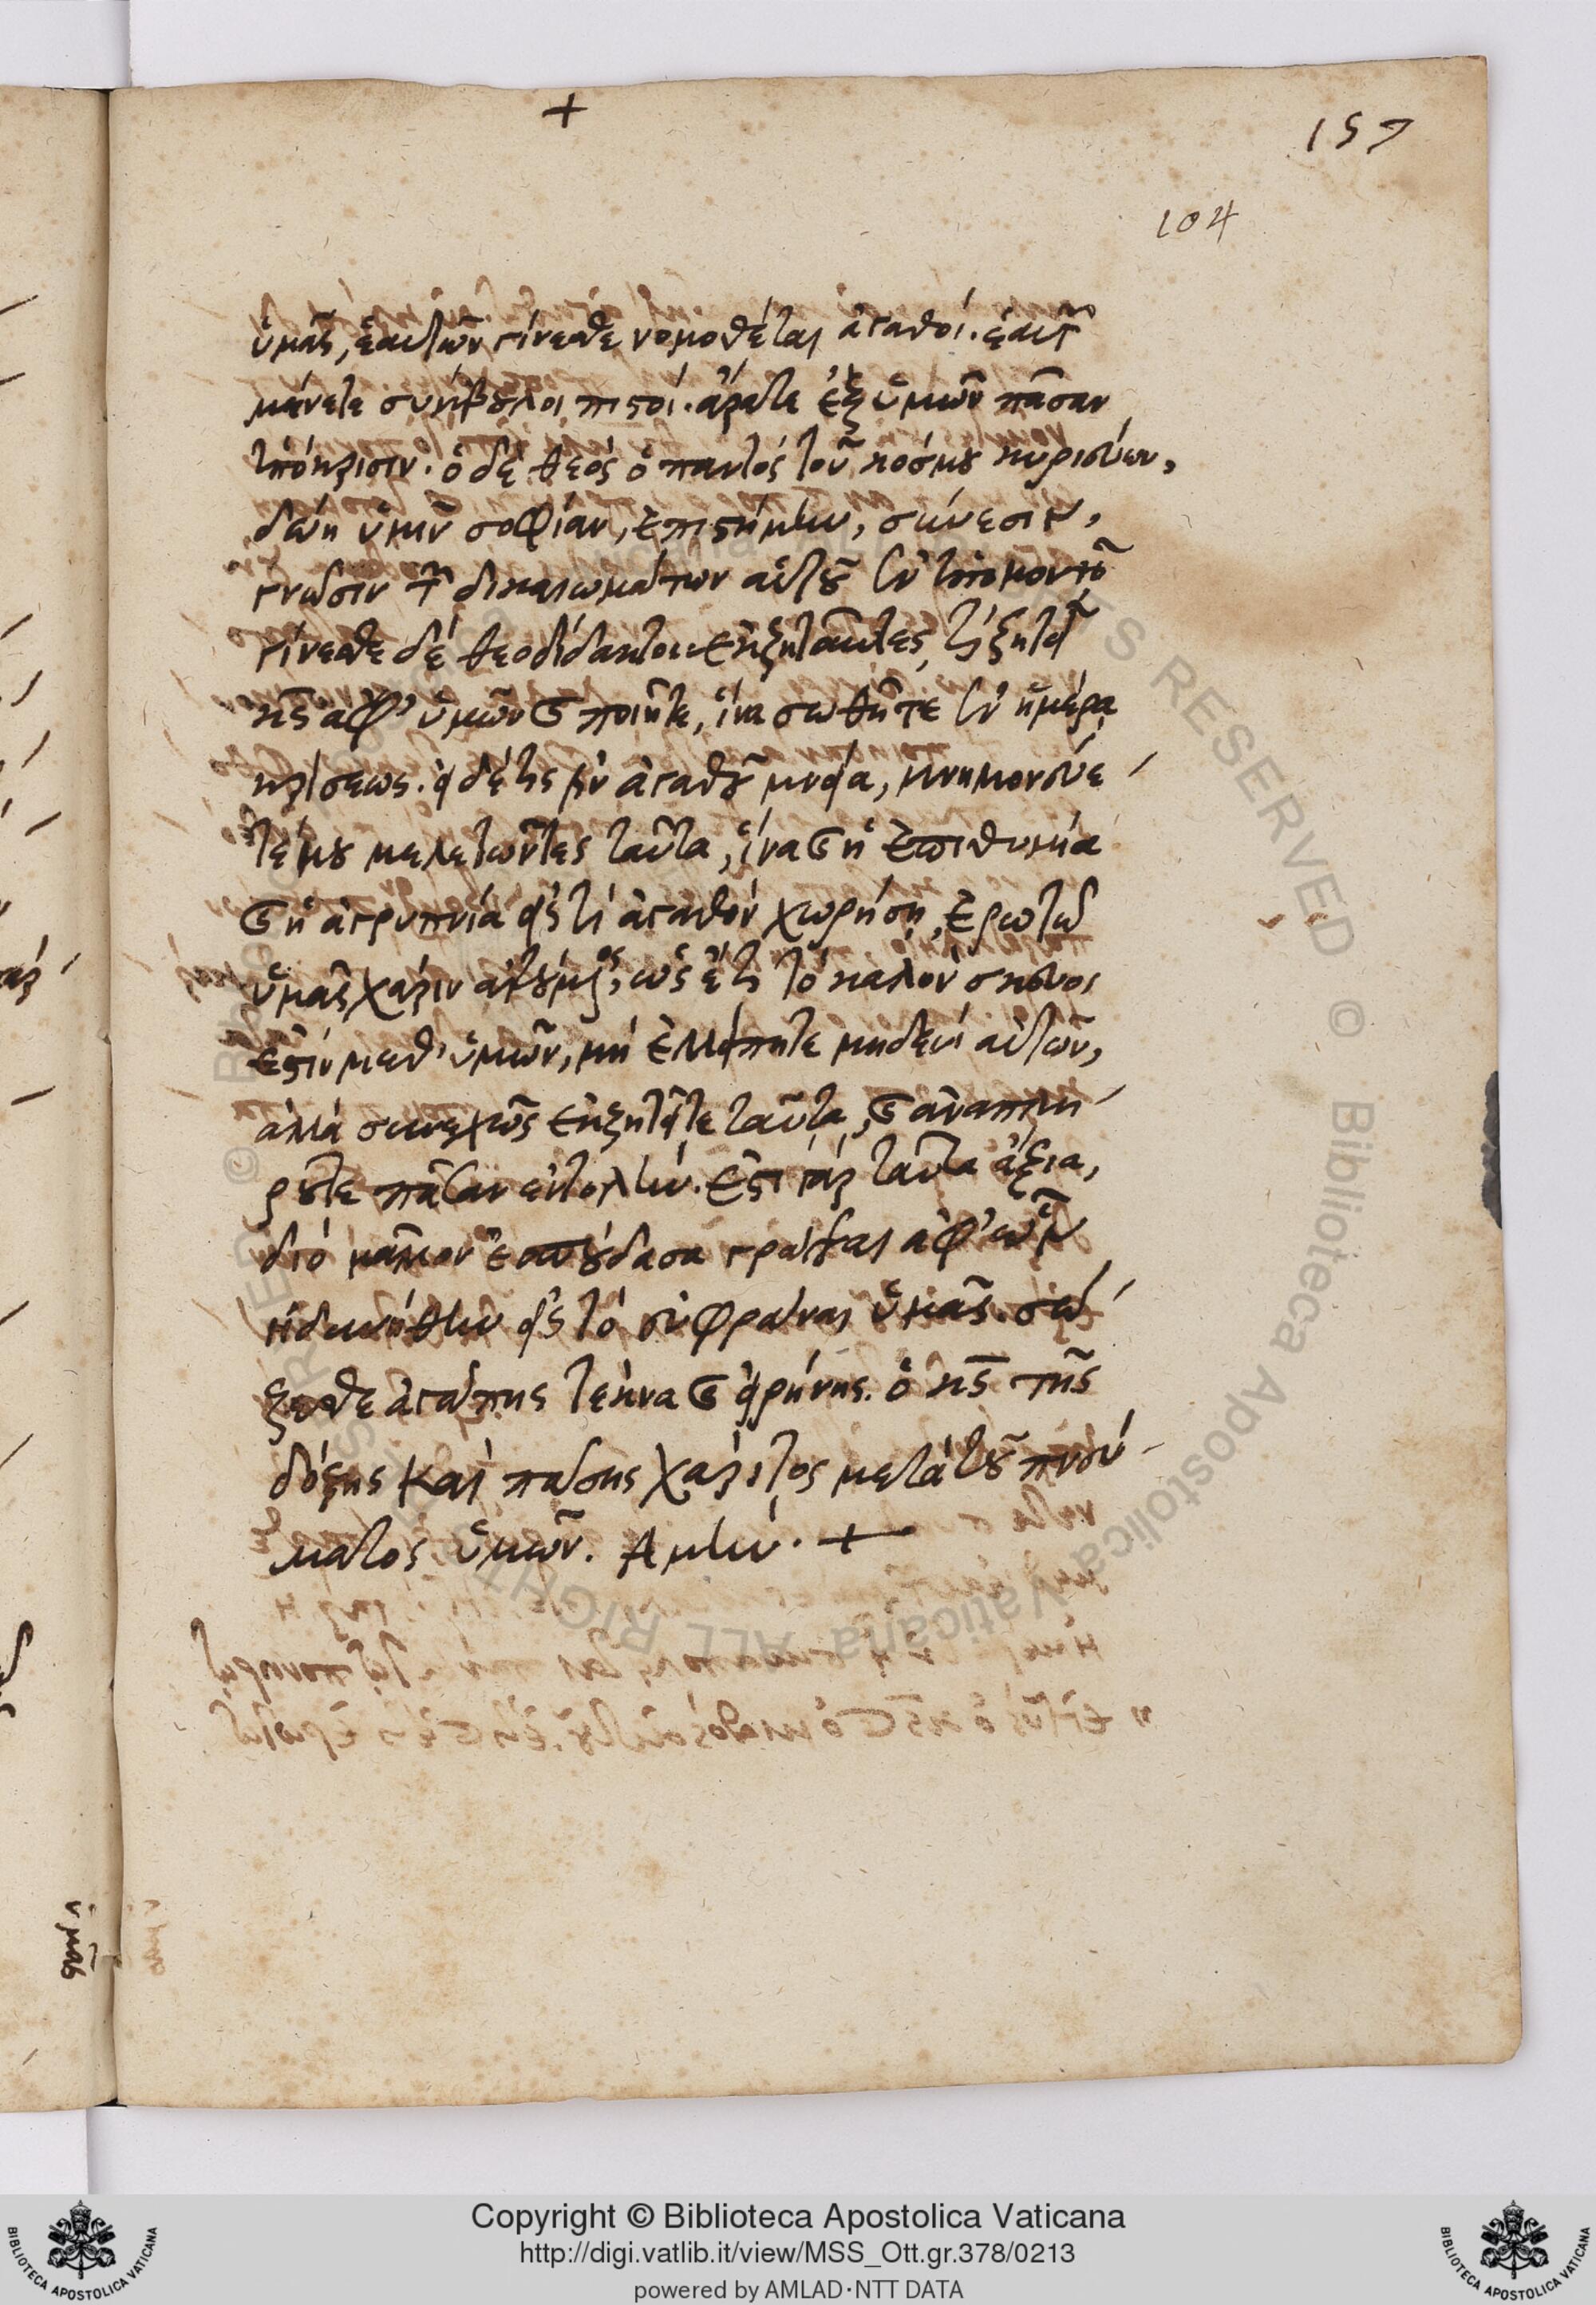 +
157
104
ὑμᾶς, ἑαυτῶν γίνεσθε νομοθέται ἀγαθοί. ἑαυτῶν
μένετε σύμβουλοι πιστοί. ἄρατε ἐξ ὑμῶν πᾶσαν
ὑπόκρισιν. ὁ δὲ θεὸς ὁ παντὸς τοῦ κόσμου κυριεύων,
δώη ὑμῖν σοφίαν, ἐπιστήμην, σύνεσιν,
γνῶσιν τῶν δικαιωμάτων αὐτοῦ ἐν ὑπομονῇ
γίνεσθε δὲ θεοδίδακτοι ἐκζητοῦντες, τί ζητεῖ
κς ἀφ' ὑμῶν καὶ ποιεῖτε, ἵνα σωθῆτε ἐν ἡμέρᾳ
κρίσεως. εἰ δέ τις ἐν ἀγαθοῦ μνεία, μνημονεύε
τέ μου μελετῶντες ταῦτα, ἵνα καὶ ἡ ἐπιθυμία
καὶ ἡ ἀγρυπνία εἴς τι ἀγαθὸν χωρήσῃ, ἐρωτῶ
ὑμᾶς χάριν αἰτούμενος, ὡς ἔτι τὸ καλὸν σκεῦος
ἐστὶν μεθ' ὑμῶν, μὴ ἐλλείπητε μηδενὶ αὐτῶν,
ἀλλὰ συνεχῶς ἐκζητεῖτε ταῦτα, καὶ ἀναπλη
ροῦτε πᾶσαν ἐντολήν. ἔστι γὰρ ταῦτα ἄξια,
διὸ μᾶλλον ἐσπούδασα γράψαι ἀφ' ὧν
ἠδυνήθην εἰς τὸ εὐφράναι ὑμᾶς. σώ
ζεσθε ἀγάπης τέκνα καὶ εἰρήνης. ὁ κς τῆς
δόξης καὶ πάσης χάριτος μετὰ τοῦ πνεύ
ματος ὑμῶν. Ἀμήν. +
ὑμᾶς
Copyright © Biblioteca Apostolica Vaticana
http://digi.vatlib.it/view/MSS_Ott.gr.378/0213
powered by AMLAD·NTT DATA